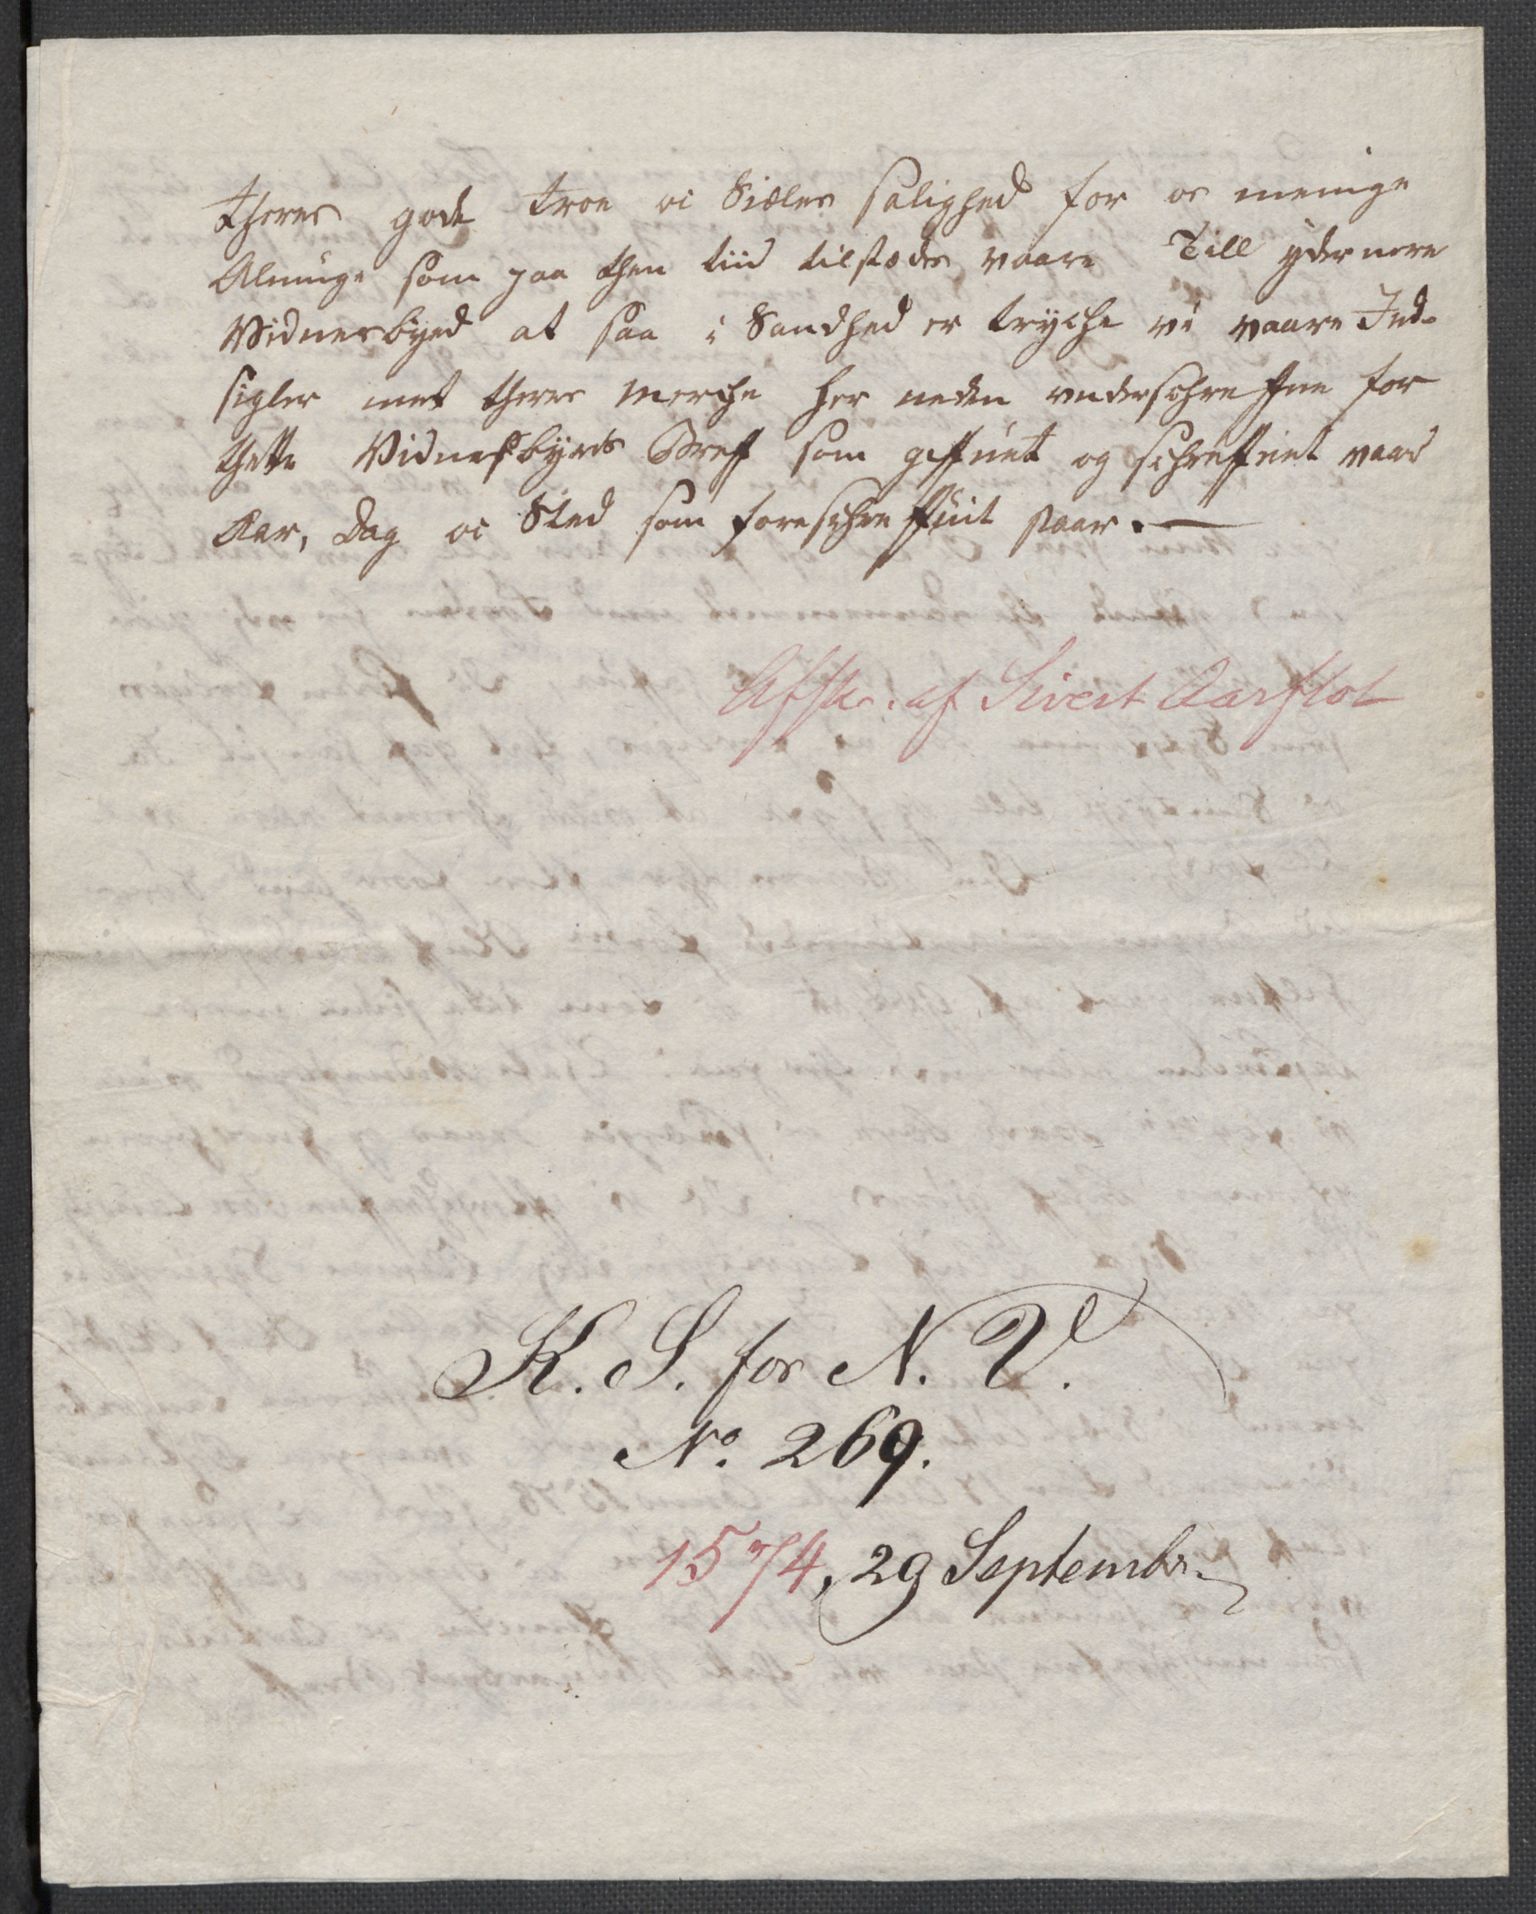 theres gode troe oc Siæles salighed for os menige
Almuge som paa then tiid tilstædes vaare Till ydermere
Vidnesbyrd at saa i Sandhed er trÿche vi vaare Ind-
sigler met theres merche her neden underschreffne for
thette Vidnesbyrds Breff som giffuet og schreffuet vaar
Aar, Dag oc Sted som foreschreffuit staar.—
Afskr. af Sivert Aarflot
K. S. for N. V.
No. 269.
1574, 29 Septembr.